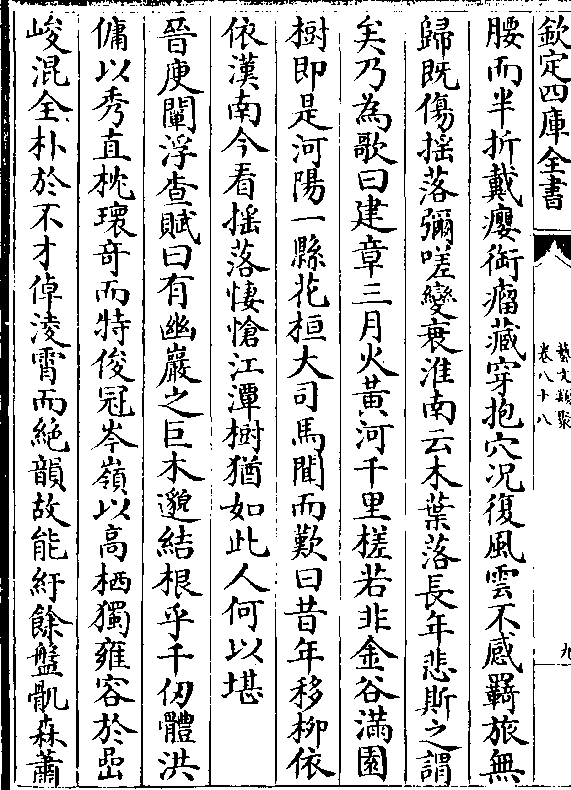 欽定四庫全書
藝文類聚
卷八十八
九
腰而半折戴癭銜瘤藏穿抱穴况復風雲不感羇旅無
歸既傷揺落彌嗟變衰淮南云木葉落長年悲斯之謂
矣乃為歌曰建章三月火黄河千里槎若非金谷滿園
樹即是河陽一縣花桓大司馬聞而歎曰昔年移柳依
依漢南今看揺落悽愴江潭樹猶如此人何以堪
晉庾闡浮查賦曰有幽巖之巨木邈結根乎千仞體洪
傭以秀直枕瓌奇而特俊冠岑嶺以高栖獨雍容於岊
峻混全朴於不才倬淩霄而絶韻故能紆餘盤肌森蕭